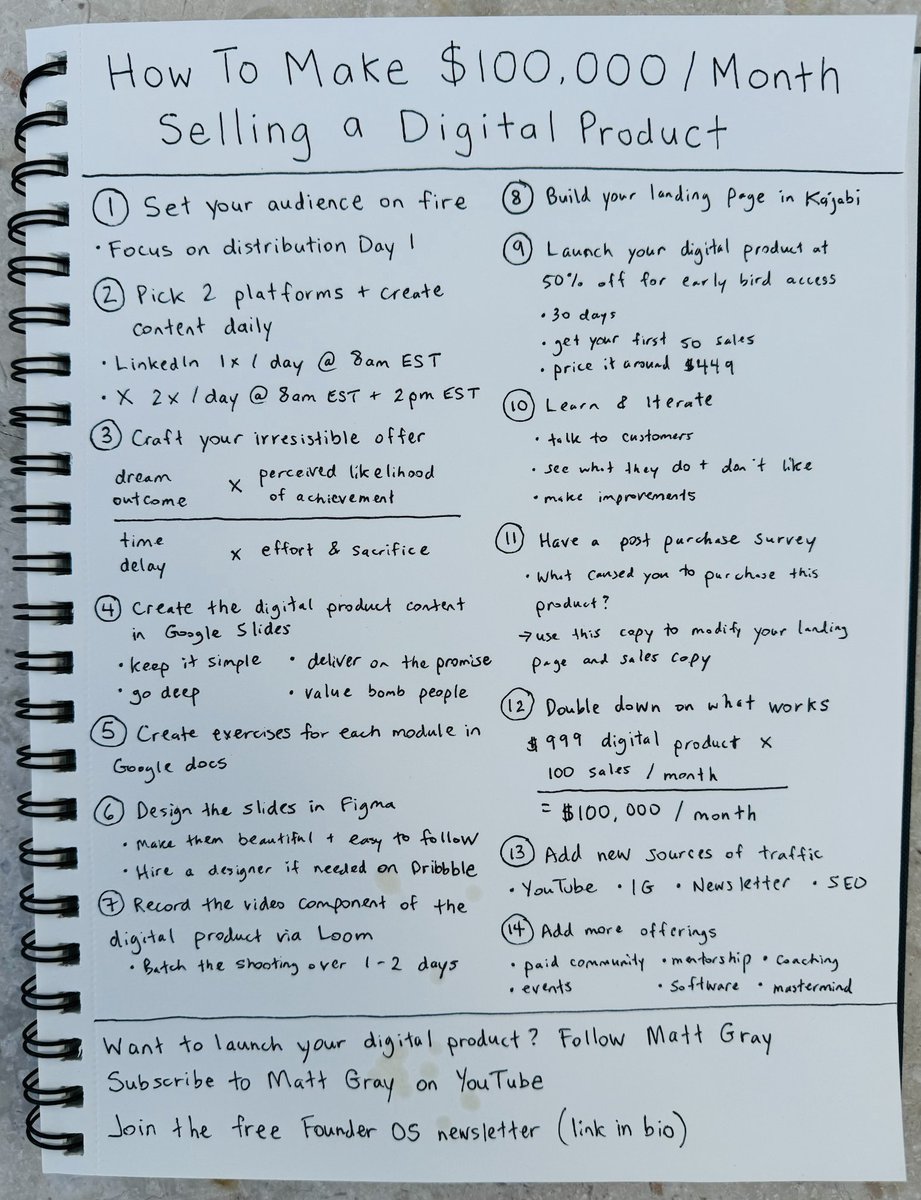 How To Make $100,000 / Month
Selling a Digital Product
① Set your audience on fire
• Focus on distribution Day 1
② Pick 2 platforms + create
content daily
• LinkedIn 1x / day @ 8am EST
• X 2x / day @ 8am EST + 2pm EST
③ Craft your irresistible offer
dream outcome x perceived likelihood of achievement
time delay x effort & sacrifice
④ Create the digital product content
in Google Slides
• keep it simple • deliver on the promise
• go deep • value bomb people
⑤ Create exercises for each module in
Google docs
⑥ Design the slides in Figma
• Make them beautiful + easy to follow
• Hire a designer if needed on Dribbble
⑦ Record the video component of the
digital product via Loom
• Batch the shooting over 1-2 days
⑧ Build your landing page in Kajabi
⑨ Launch your digital product at
50% off for early bird access
• 30 days
• get your first 50 sales
• price it around $449
⑩ Learn & Iterate
• talk to customers
• see what they do + don't like
• make improvements
⑪ Have a post purchase survey
• What caused you to purchase this
product?
→ use this copy to modify your landing
page and sales copy
⑫ Double down on what works
$999 digital product x
100 sales / month
= $100,000 / month
⑬ Add new sources of traffic
• YouTube • IG • Newsletter • SEO
⑭ Add more offerings
• paid community • mentorship • coaching
• events • software • mastermind
Want to launch your digital product? Follow Matt Gray
Subscribe to Matt Gray on YouTube
Join the free Founder OS newsletter (link in bio)